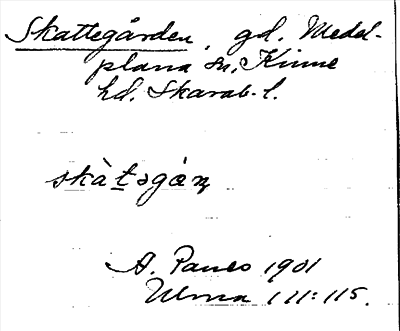 Skattegården, gd. Medel-
plana sn, Kinne
hd. Skarab. l.
skàt̠əgɑ̀ɳ
A. Paues 1901
Ulma 111:115.